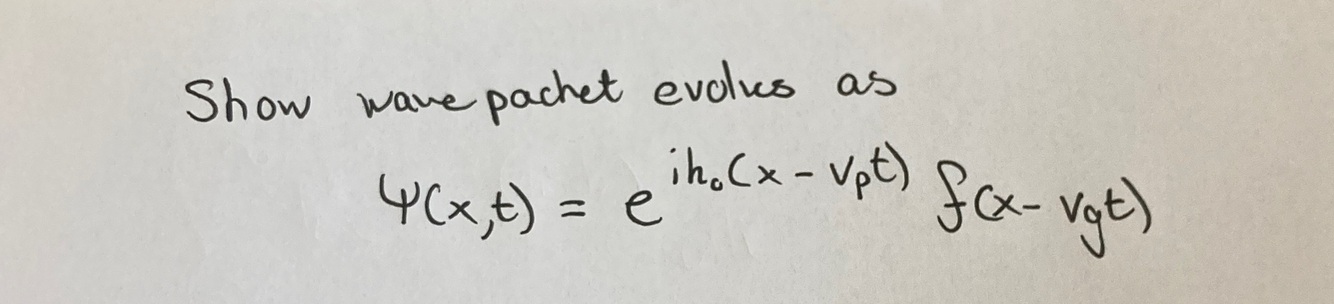 Show wave packet evolves as
Ψ(x,t) = e^{ik₀(x - vₚt)} f(x - v_gt)